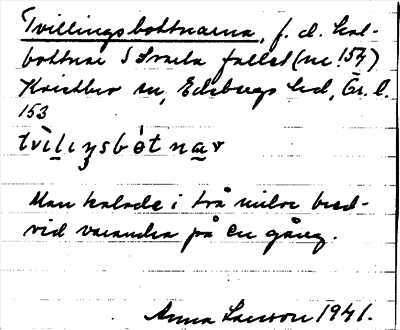 Tvillingsbottnarna, f. d. kol-
bottnar S Svarta fallet (nr 154)
Kvistbro sn, Edsbergs hd, Ör. l.
153
tvìliŋsbòtnar
Man kolade i två milor bred-
vid varandra på en gång.
Anna Larsson 1941.